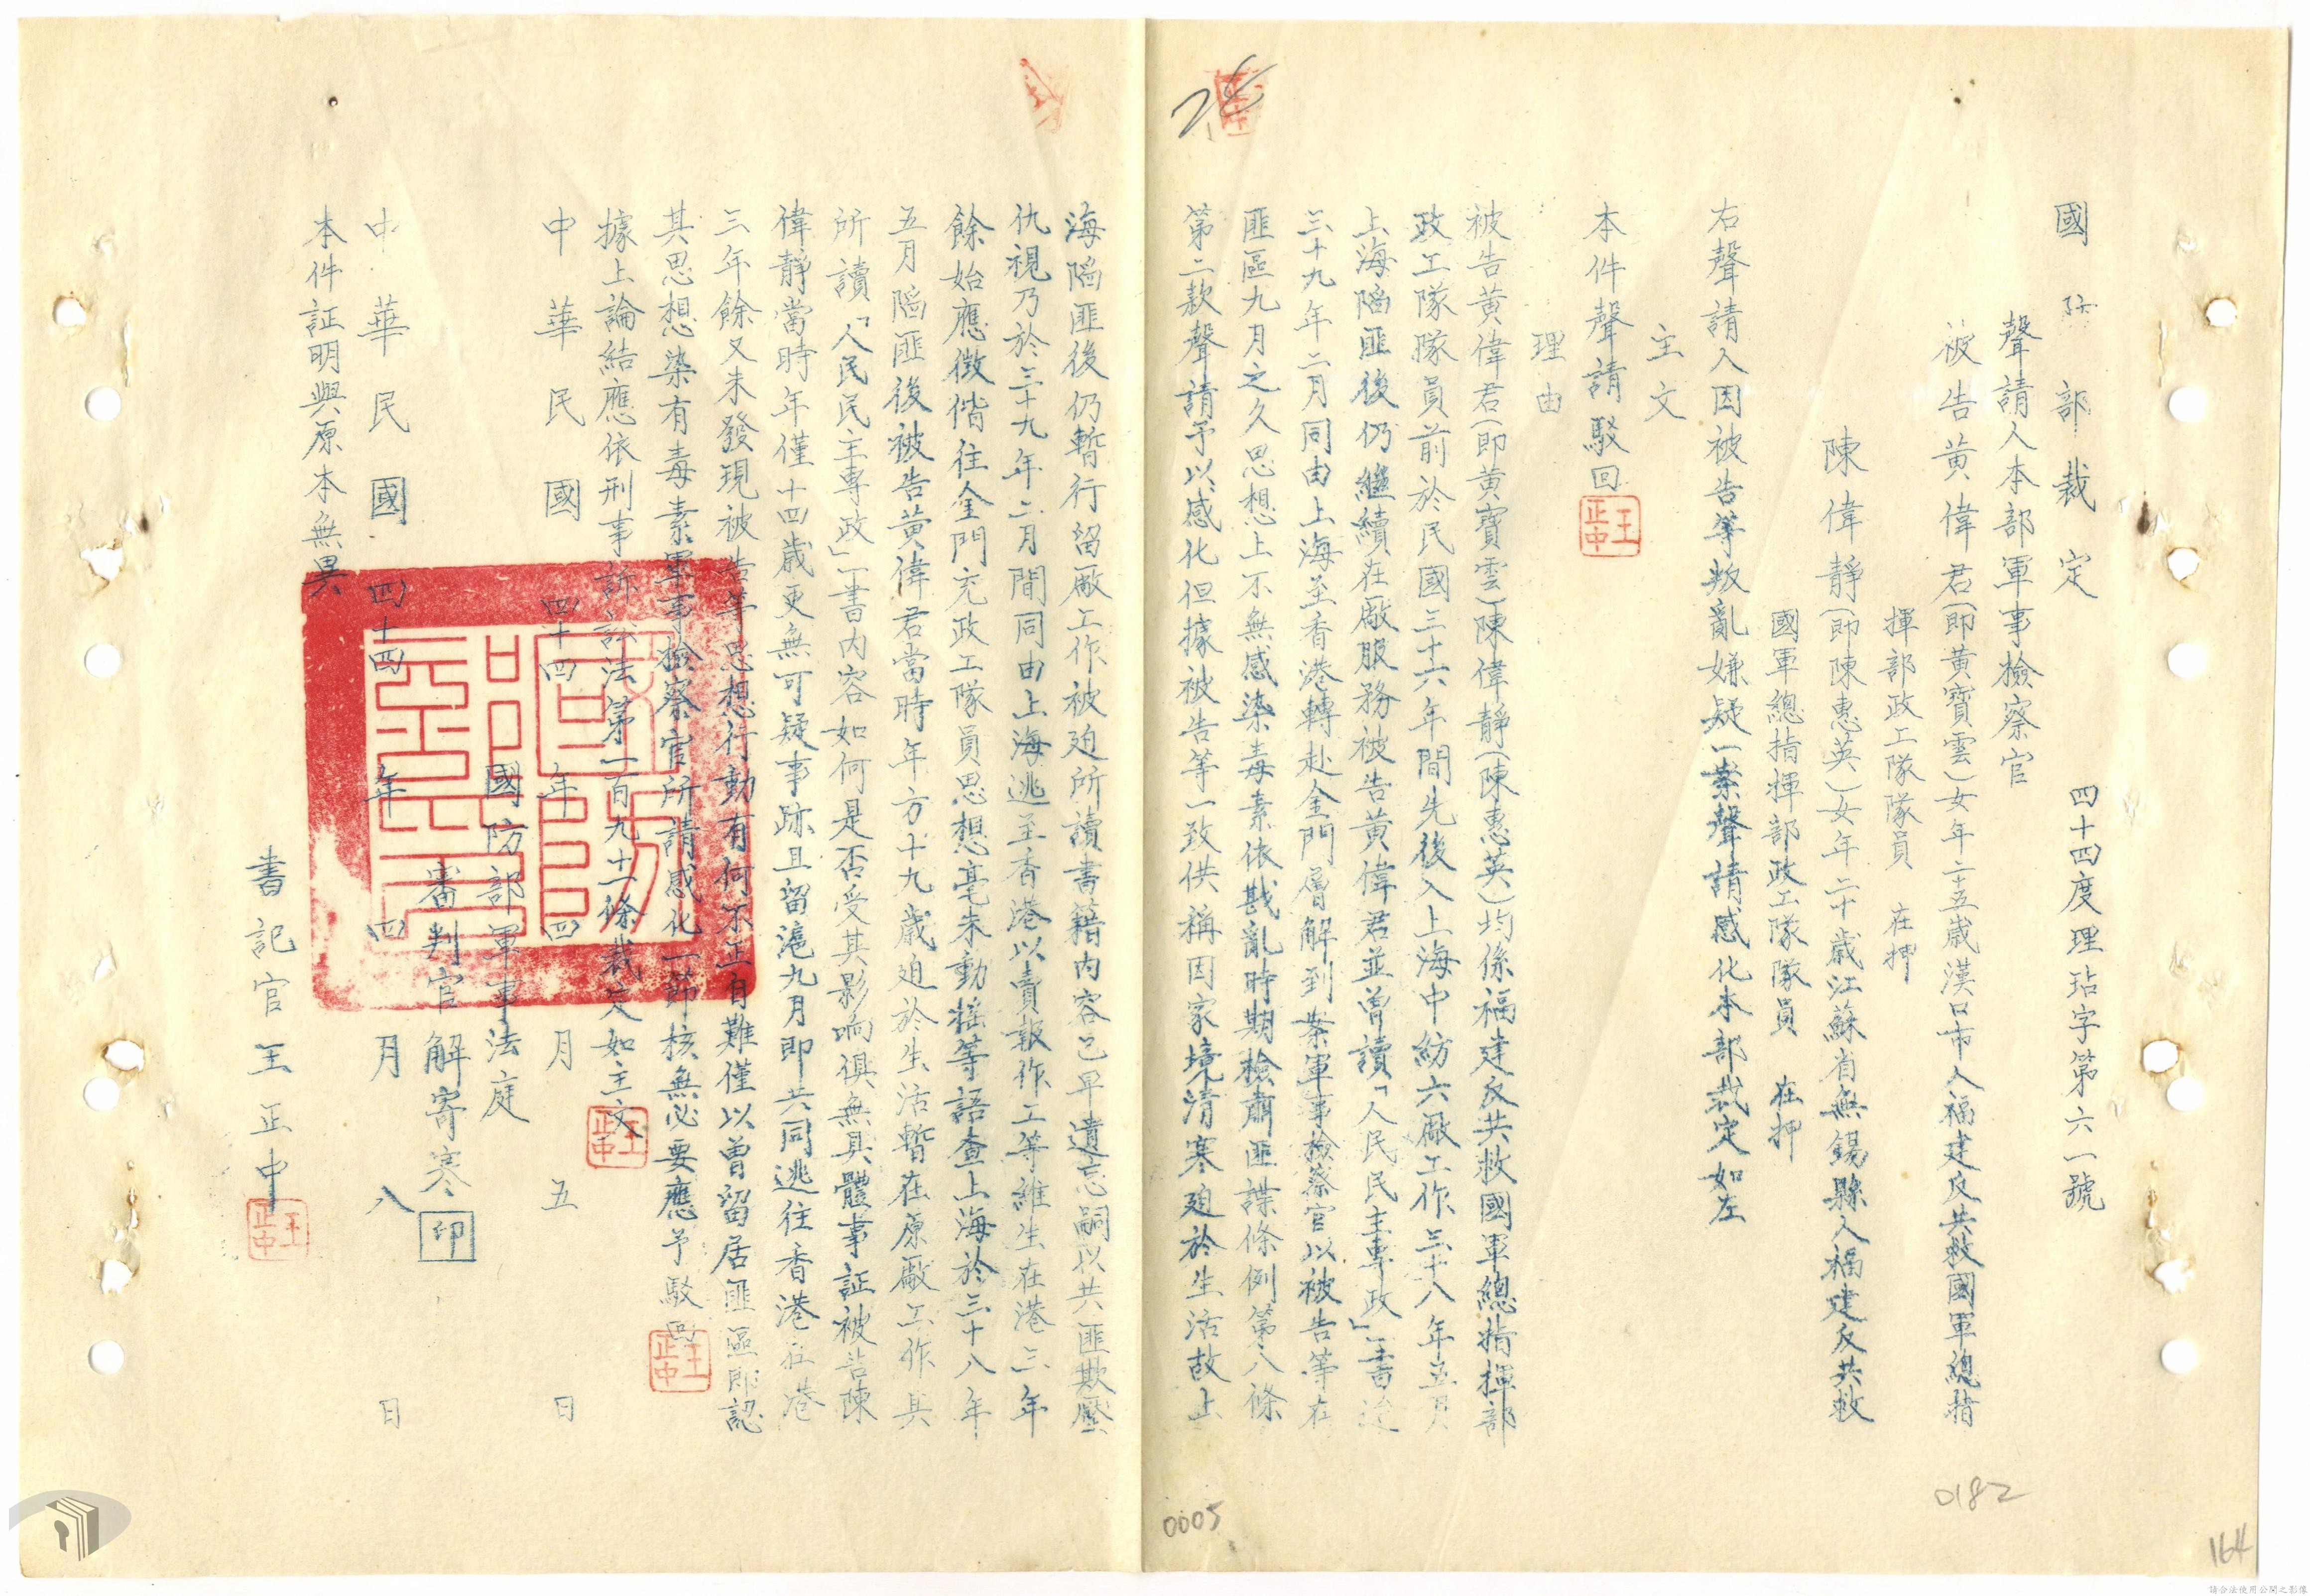 國防部裁定
四十四度理玷字第六一號
聲請人本部軍事檢察官
被告黃偉君(即黃寶雲)女年二十五歲漢口市人福建反共救國軍總指
揮部政工隊隊員 在押
陳偉靜(即陳惠英)女年二十歲江蘇省無錫縣人福建反共救
國軍總指揮部政工隊隊員 在押
右聲請人因被告等叛亂嫌疑一案聲請感化本部裁定如左
主文
本件聲請駁回
王正中
理由
被告黃偉君(即黃寶雲)陳偉靜(陳惠英)均係福建反共救國軍總指揮部
政工隊隊員前於民國三十六年間先後入上海中紡六廠工作三十八年五月
上海陷匪後仍繼續在廠服務被告黃偉君並曾讀「人民民主專政」一書迨
三十九年二月同由上海至香港轉赴金門層解到案軍事檢察官以被告等在
匪區九月之久思想上不無感染毒素依戡亂時期檢肅匪諜條例第八條
第二款聲請予以感化但據被告等一致供稱因家境清寒迫於生活故上
海陷匪後仍暫行留廠工作被迫所讀書籍內容已早遺忘嗣以共匪欺壓
仇視乃於三十九年二月間同由上海逃至香港以賣報作工等維生在港三年
餘始應徵偕往金門充政工隊員思想毫未動搖等語查上海於三十八年
五月陷匪後被告黃偉君當時年方十九歲迫於生活暫在原廠工作其
所讀「人民民主專政」一書內容如何是否受其影响俱無具體事証被告陳
偉靜當時年僅十四歲更無可疑事跡且留滬九月即共同逃往香港在港
三年餘又未發現被告等思想行動有何不正自難僅以曾留居匪區即認
其思想染有毒素軍事檢察官所請感化一節核無必要應予駁回
王正中
據上論結應依刑事訴訟法第二百九十一條裁定如主文
王正中
中華民國四十四年四月五日
國防部軍事法庭
審判官解寄寒 印
中華民國四十四年四月八日
本件証明與原本無異
書記官王正中
王正中
0005
0182
164
請合法使用公開之影像